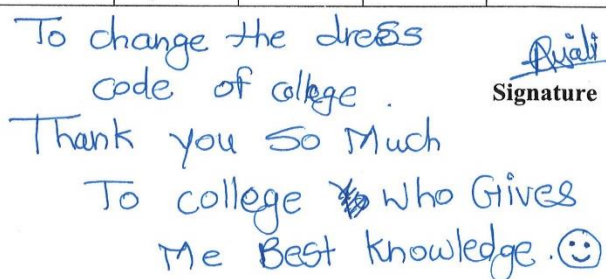 To change the dress
code of college.
Anjali
Signature
Thank you So Much
To college Who Gives
Me Best Knowledge. ☺